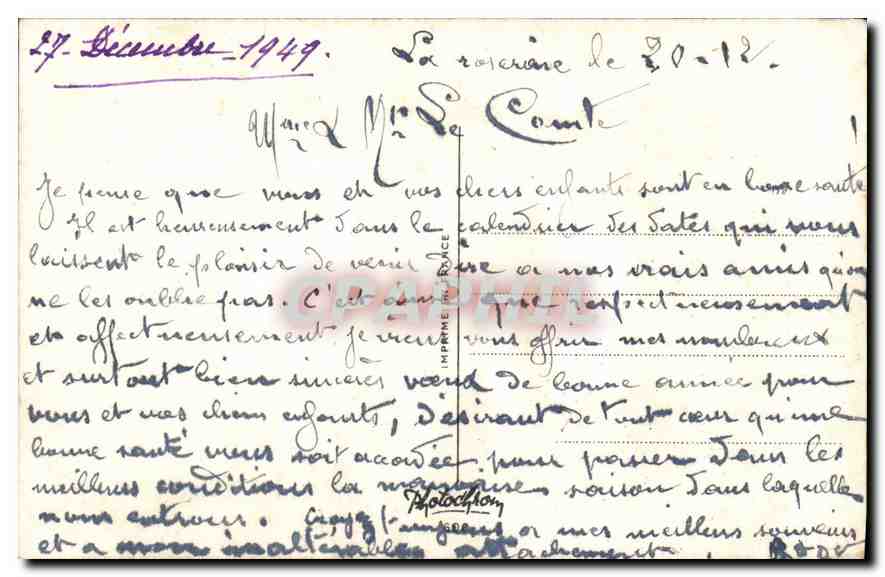 27 - Décembre - 1949.
La roseraie le 20-12.
Mme & Mr Le Comte
Je pense que vous et vos chers enfants sont en bonne santé !
Il est heureusement dans le calendrier des dates qui vous
laissent le plaisir de venir dire a nos vrais amis qu'on
ne les oublie pas. C'est ainsi que respectueusement
et affectueusement je viens vous offrir mes nombreux
et surtout bien sincères voeux de bonne année pour
vous et vos chers enfants, désirant de tout coeur qu'une
bonne santé vous soit accordée pour passer dans les
meilleurs conditions la mauvaise saison dans laquelle
nous entrons. Croyez toujours a mes meilleurs souvenirs
et a mon inaltérable attachement.
IMPRIMÉ EN FRANCE
Photochrom
CPAPHIL